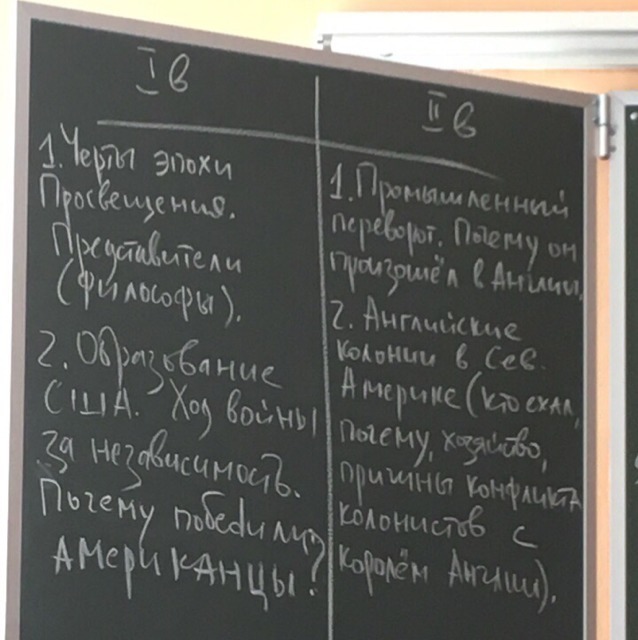 I в
1. Черты эпохи
Просвещения.
Представители
(философы).
2. Образование
США. Ход войны
за независимость.
Почему победили
американцы?
II в
1. Промышленный
переворот. Почему он
произошёл в Англии.
2. Английские
колонии в Сев.
Америке (кто ехал,
почему, хозяйство,
причины конфликта
колонистов с
королём Англии).